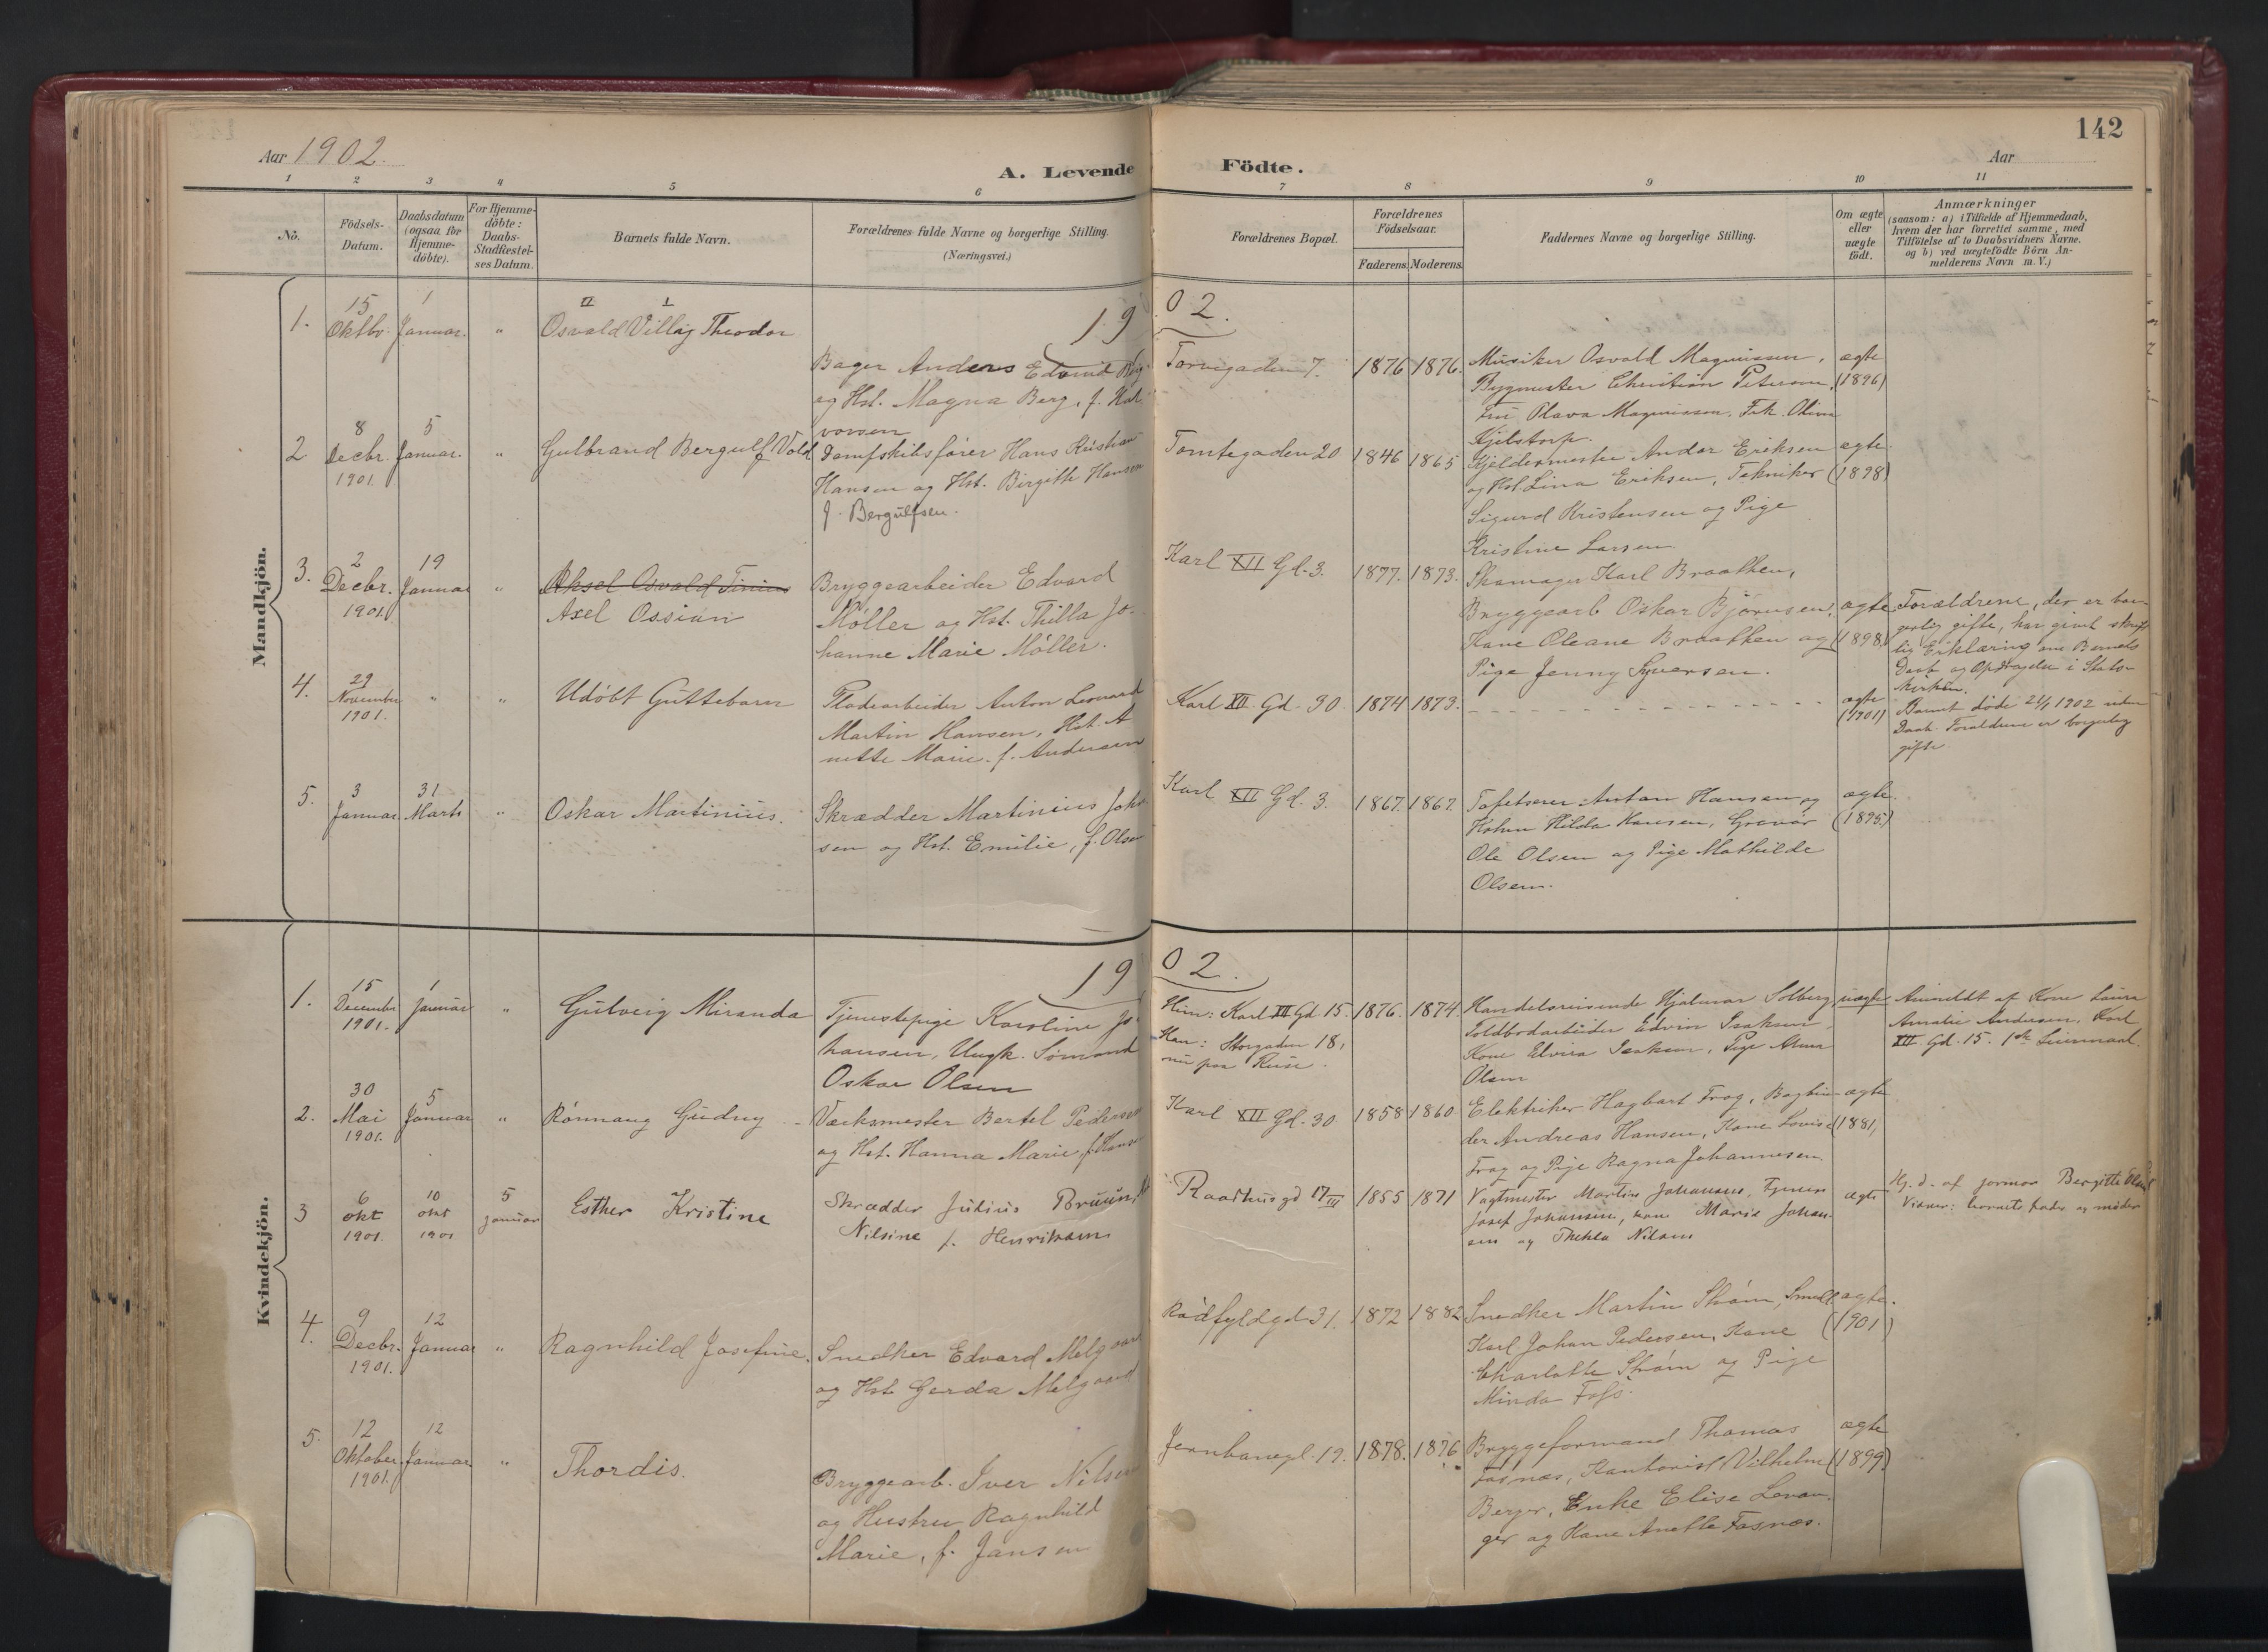 142
Aar 1902.
A. Levende Födte.
Aar
1 2 3 4 5 6 7 8 9 10 11
Nö.
Födsels-
Datum.
Daabsdatum
(ogsaa for
Hjemme-
döbte).
For Hjemme-
döbte:
Daabs-
Stadfæstel-
ses Datum.
Barnets fulde Navn.
Forældrenes fulde Navne og borgerlige Stilling.
(Næringsvei.)
Forældrenes Bopæl.
Forældrenes
Födselsaar.
Faderens. Moderens.
Faddernes Navne og borgerlige Stilling.
Om ægte
eller
uægte
födt.
Anmærkninger
(saasom: a) i Tilfælde af Hjemmedaab,
hvem der har forrettet samme, med
Tilföielse af to Daabsvidners Navne.
og b) ved uægtefödte Börn An-
melderens Navn m. V.)
Mandkjön.
1902.
1.
15
Oktbr.
1
Januar.
"
II I
Osvald Villy Theodor
Bager Anders Edvind Berg
og Hst. Magna Berg, f. Hal
vorsen
Torvegaden 7.
1876 1876.
Musiker Osvald Magnussen,
Bygmester Christian Petersen,
Fru Olava Magnussen. Frk. Oliva
Kjelstorp.
ægte
(1896)
2
8
Decbr.
1901.
5
Januar.
"
Gulbrand Bergulf Vold
Dampskibsfører Hans Kristian
Hansen og Hst. Birgitte Hansen
f. Bergulfsen.
Tomtegaden 20
1846 1865
Kjeldermester Andor Eriksen
og Hst. Lina Eriksen, Tekniker
Sigurd Kristensen og Pige
Kristine Larsen
ægte
(1898)
3.
2
Decbr.
1901.
19
Januar
"
Aksel Osvald Tinius
Axel Ossian
Bryggearbeider Edvard
Møller og Hst. Thilla Jo-
hanne Marie Møller.
Karl XII Gd. 3.
1877. 1873.
Skomager Karl Braathen,
Bryggearb Oskar Bjørnsen,
Kone Oleane Braathen og
Pige Jenny Syversen.
ægte
(1898)
Forældrene, der er bor-
gerlig gifte, har givet skrift
lig Erklæring om Barnets
Daab og Opdragelse i Stats-
kirken.
4.
29
November
1901.
"
"
Udöbt Guttebarn
Pladearbeider Anton Leonard
Martin Hansen, Hst. A
nette Marie f. Andersen
Karl XII. Gd. 30.
1874 1873.
ægte
(1901)
Barnet döde 24/1 1902 uden
Daab. Forældrene er borgerlig
gifte
5.
3
Januar.
31
Marts
"
Oskar Martinius.
Skrædder Martinius Johan
sen og Hst. Emilie, f. Olsen
Karl XII Gd. 3.
1867. 1867.
Tapetserer Anton Hansen og
Kone Hilda Hansen, Gravør
Ole Olsen og Pige Mathilde
Olsen.
ægte
(1895.)
Kvindekjön.
1902.
1.
15
December
1901.
1
Januar
"
Gulveig Miranda
Tjenestepige Karoline Jo
hansen, Ungk. Sømand
Oskar Olsen
Hun: Karl XII Gd 15.
Han: Storgaden 18,
nu paa Reise.
1876. 1874.
Handelsreisende Hjalmar Solberg,
Toldbodarbeider Edvin Isaksen,
Kone Elvira Isaksen, Pige Anna
Olsen
uægte
Anmeldt af Kone Laura
Amalie Andersen, Karl
XII. Gd. 15. 1ste Leiermaal.
2.
30
Mai
1901.
5
Januar
"
Rönnaug Gudny
Værksmester Bertel Pedersen
og Hst. Hanna Marie, f. Hansen
Karl XII Gd. 30
1858 1860
Elektriker Hagbart Frog, Bogbin-
der Andreas Hansen, Kone Lovise
Frog og Pige Ragna Johannesen.
ægte
(1881)
3
6
okt
1901.
10
okt
1901
5
januar
Esther Kristine
Skrædder Julius Bruun,
Nilsine f. Henriksen
Raadhusgd 17 III
1855 1871
Vagtmester Martin Johansen,
Josef Johansen, kone Marie Johan-
sen og Thekla Nilsen
ægte
Hj. d. af jormor Bergitte Olsen
Vidner: barnets fader og moder
4.
9
Decbr.
1901.
12
Januar
"
Ragnhild Josefine.
Snedker Edvard Melgaard
og Hst Gerda Melgaard
Rådfyldgd. 31.
1872 1882
Snedker Martin Strøm,
Karl Johan Pedersen, Kone
Charlotte Strøm og Pige
Minda Foss.
ægte.
(1901)
5.
12
Oktober
1901.
12
Januar
"
Thordis.
Bryggearb. Iver Nilsen
og Hustru Ragnhild
Marie, f. Jansen
Jernbanegd. 19.
1878. 1876.
Bryggeformand Thomas
Fosnæs, Kontorist Vilhelm
Berger, Enke Elise Levan-
ger og Kone Anette Fosnæs.
ægte
(1899)